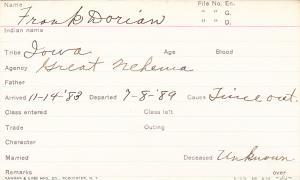 Name File No. En.
Frank Dorian " " G.
Indian name " " D.
Tribe Iowa Age Blood
Agency Great Nehema
Father
Arrived 11-14-'83 Departed 7-8-'89 Cause Time out.
Class entered Class left
Trade Outing
Character
Married Deceased Unknown
Remarks over